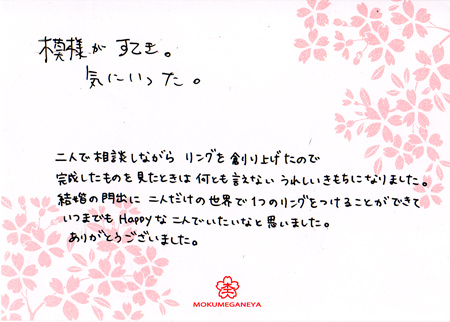 模様が すてき。
気にいった。
二人で相談しながら リングを創り上げたので
完成したものを見たときは何とも言えない うれしいきもちになりました。
結婚の門出に 二人だけの世界で1つのリングをつけることができて
いつまでも Happyな二人でいたいなと思いました。
ありがとうございました。
MOKUMEGANEYA